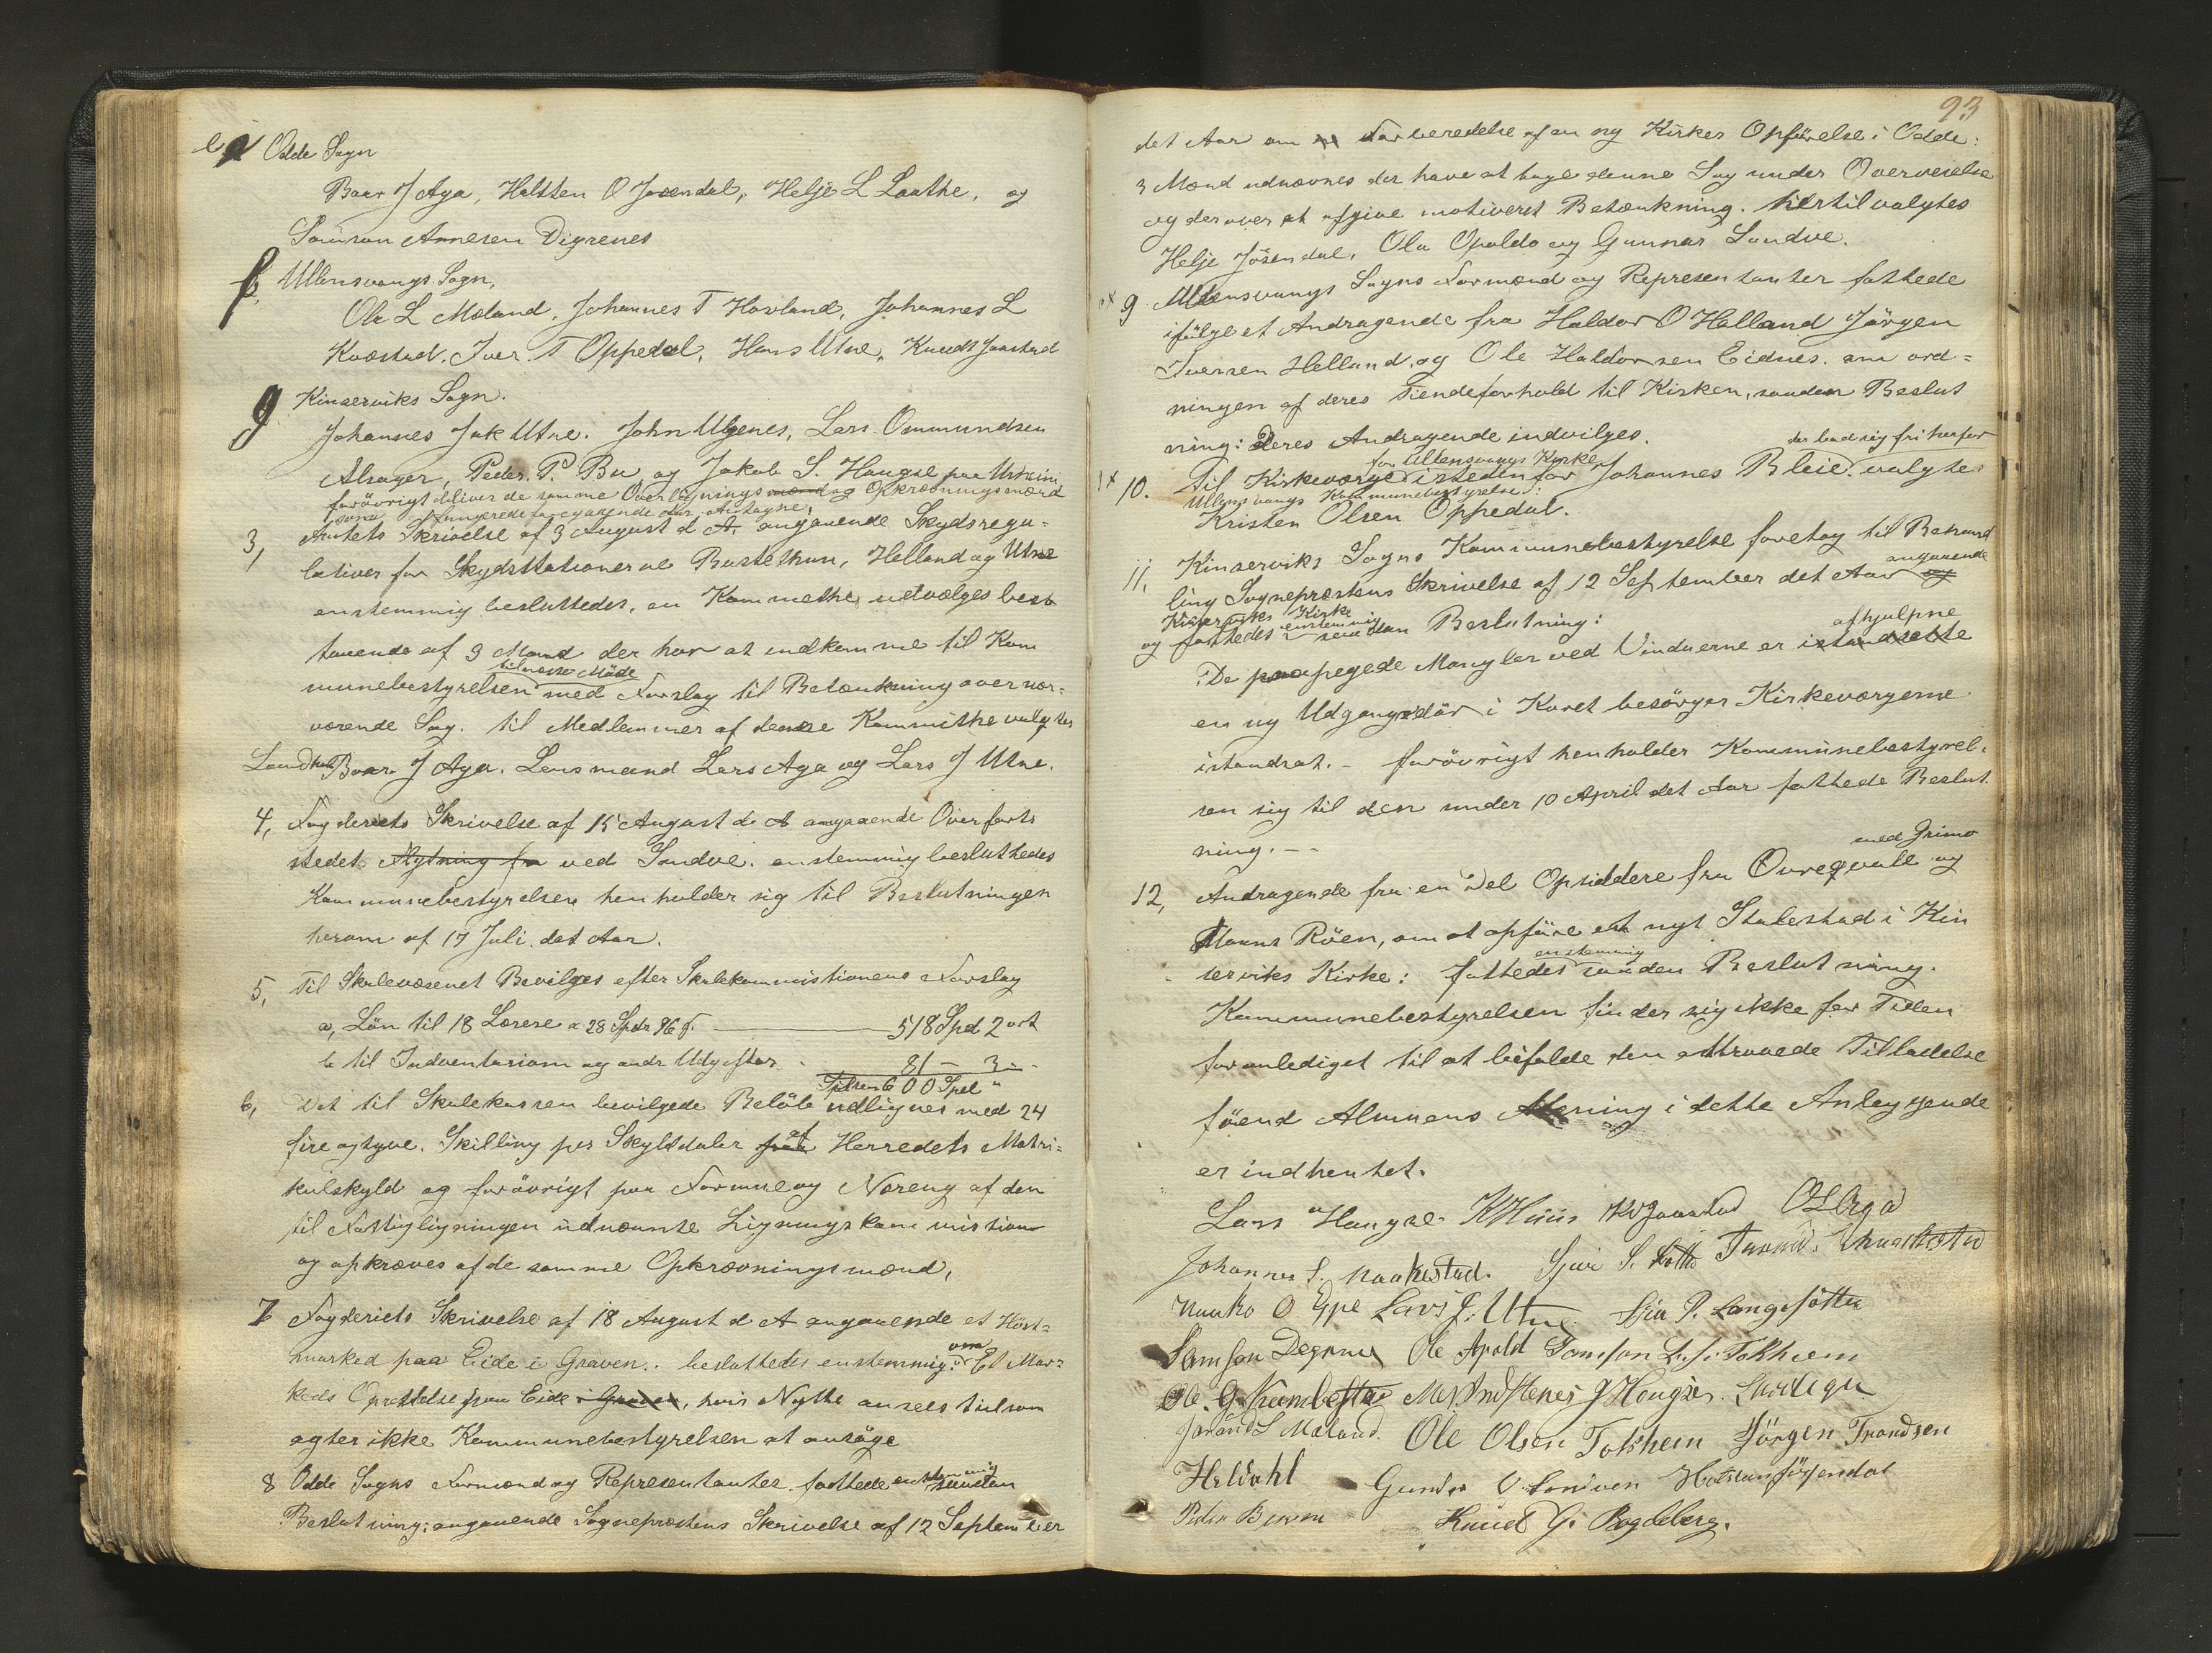 e Odde Sogn
Baar J Aga, Halsten O Jøsendal, Helje L Laathe, og
Samson Arnesen Digrenes
f, Ullensvangs Sogn,
Ole L Mæland, Johannes T Hovland, Johannes L
Kvæstad. Iver T Oppedal, Hans Utne, Knudt Jaastad
g Kinserviks Sogn.
Johannes Jak Utne. John Ulgenes, Lars Ommundsen
Alsager, Peder P. Bu og Jakob S. Haugse paa Utheim
forövrigt bliver de samme Overligningsmænd og Opkrævningsmænd
som fungerede foregaaende Aar, Antagne,
3, Amtets Skrivelse af 3 August d A. angaaende Skydsregu=
lativer for Skydsstationerne Bustethun, Helland og Utne
enstemmig besluttedes, en Kommethe udvælges best
taaende af 3 Mænd der har at indkomme til Kom
til næste Möde
munebestyrelsen med Forslag til Betænkning over nær=
værende Sag. til Medlemmer af denne Kommithe valgtes
Landh. Baar J Aga. Lensmand Lars Aga og Lars J Utne.
4, Fogderiets Skrivelse af 15 August d A angaaende Overfarts
stedets Flytning fra ved Sandve. enstemmig besluttedes
Kommunebestyrelsen henholder sig til Beslutningen
herom af 17 Juli det Aar.
5, Til Skulevæsenet Bevilges efter Skulekommistionens Forslag
a, Lön til 18 Lærere a 28 Spdr 96 s. — 518 Spd 2 ort
b til Indventarium og andr Udgifter - 81 — 3 — -
Tilsam 600 Spd "
6, Det til Skulekassen bevilgede Belöb udlignes med 24
fire og tyve. Skilling per Skylddaler paa af Herredets Matri=
kulskyld og forövrigt paa Formue og Næreng af den
til Fattigligningen udnævnte Ligningskommistion
og opkræves af de samme Opkrævningsmænd,
7 Fogderiets Skrivelse af 18 August d A angaaende et Höst=
marked paa Eide i Graven. besluttedes enstemmig: om Et Mar=
keds Oprettelse paa Eide i Graven, hvis Nytte ansees tvilsom
agter ikke Kommunebestyrelsen at ansöge
8 Odde Sogns Formænd og Representanter fattede enstemmig saadan
Beslutning: angaaende Sogneprestens Skrivelse af 12 September
93
det Aar om Forberedelse af en ny Kirkes Opförelse i Odde:
3 Mænd udnævnes der have at tage denne Sag under Overveielse
og derover at afgive motiveret Betænkning. Hertil valgtes
Helje Jösendal, Ola Opaldo og Gunnar Sandve.
9. Ullensvangs Sogns Formænd og Representanter fattede
ifölge et Andragende fra Haldor O Helland Jörgen
Iversen Helland, og Ole Haldorsen Eidnes. om ord=
ningen af deres Tiendeforhold til Kirken, saadan Beslut
ning: Deres Andragende indvilges.
for Ullensvangs Kirke der bad sig fri herfor
10. Til Kirkeværge istedenfor Johannes Bleie valgte
Ullensvangs Kommunebestyrelse:
Kristen Olsen Oppedal.
11, Kinserviks Sogns Kommunebestyrelse foretog til Behand
ling Sogneprestens Skrivelse af 12 September det Aar og angaaende
Kinserviks Kirke
og fattedes enstemmig saadan Beslutning:
De paapegede Mangler ved Vinduerne er istandsatte afhjulpne
en ny Udgangsdör i Koret besörger Kirkeværgerne
istandsat. - forövrigt henholder Kommunebestyrel-
sen sig til den under 10 April det Aar fattede Beslut
ning. - -
12, Andragende fra en Del Opsiddere fra Qveqvale med Grimo og
Mauns Röen, om at opföre et nyt Stolestad i Kin
serviks Kirke: fattedes enstemmig saadan Beslutning.
Kommunebestyrelsen finder sig ikke for Tiden
foranlediget til at bifalde den attraaede Tilladelse
föend Almuens Mening i dette Anleggende
er indhentet.
Lars Haugse. K Huus
Johannes S. Naakestad. Sjur S. Lotthe
Lars J. Utne P. Langesötter
Samson Degrenes Ole Apold Samson L. Tokheim
J Haugse.
S Mæland. Ole Olsen Tokheim Jörgen Trondsen
Gunder O Sandven Halsten Jösendal
Knud G. Bogdeberg.